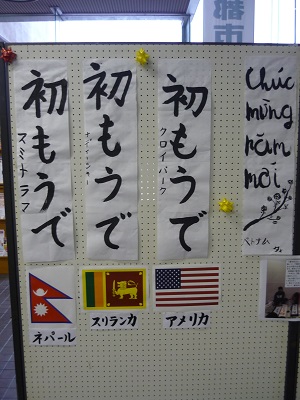 初もうで
スミトラフ
初もうで
初もうで
クロイバーク
Chúc
mừng
năm
mới
ベトナム
ネパール
スリランカ
アメリカ
都市